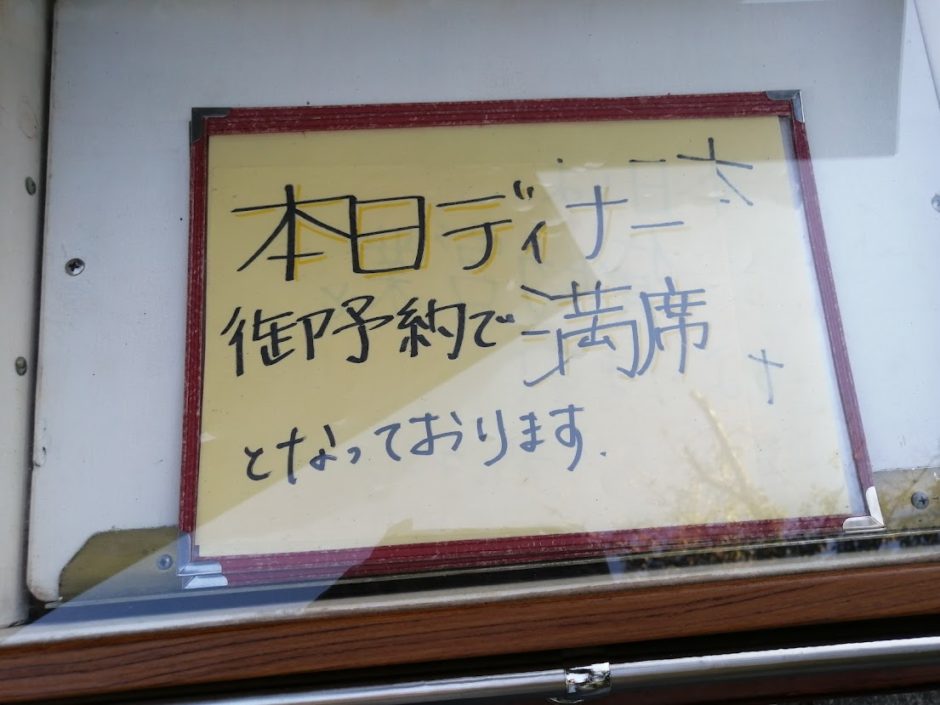 本日ディナー
御予約で満席
となっております.